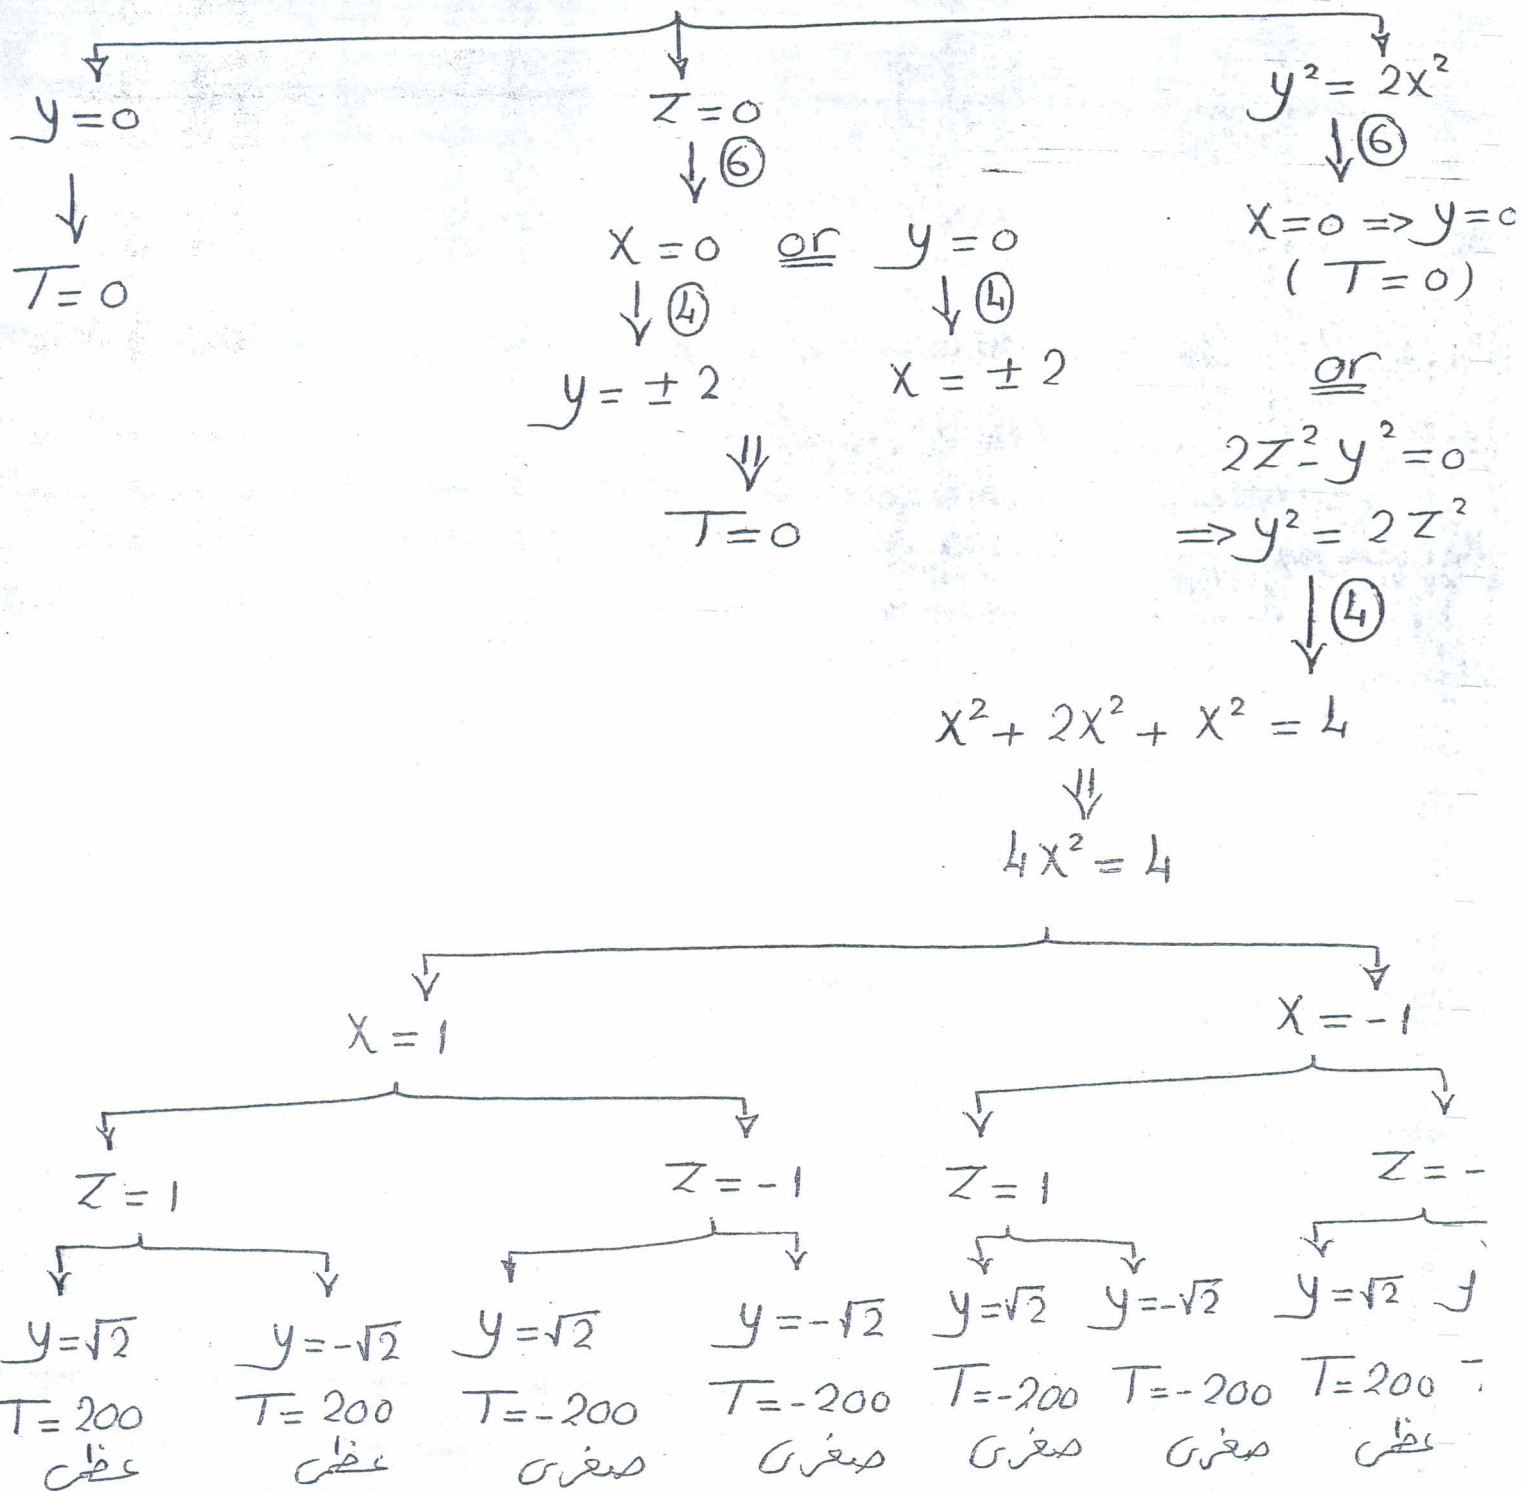 y = 0    z = 0    y² = 2x²
↓ ⑥    ↓ ⑥
T = 0    x = 0 or y = 0    x = 0 => y = 0
↓ ④    ↓ ④    ( T = 0 )
y = ± 2    x = ± 2    or
⇓    2z² - y² = 0
T = 0    => y² = 2z²
↓ ④
x² + 2x² + x² = 4
⇓
4x² = 4
x = 1    x = -1
z = 1    z = -1    z = 1    z = -
y = √2    y = -√2    y = √2    y = -√2    y = √2    y = -√2    y = √2    y
T = 200    T = 200    T = -200    T = -200    T = -200    T = -200    T = 200
عظمى    عظمى    صغرى    صغرى    صغرى    صغرى    عظمى